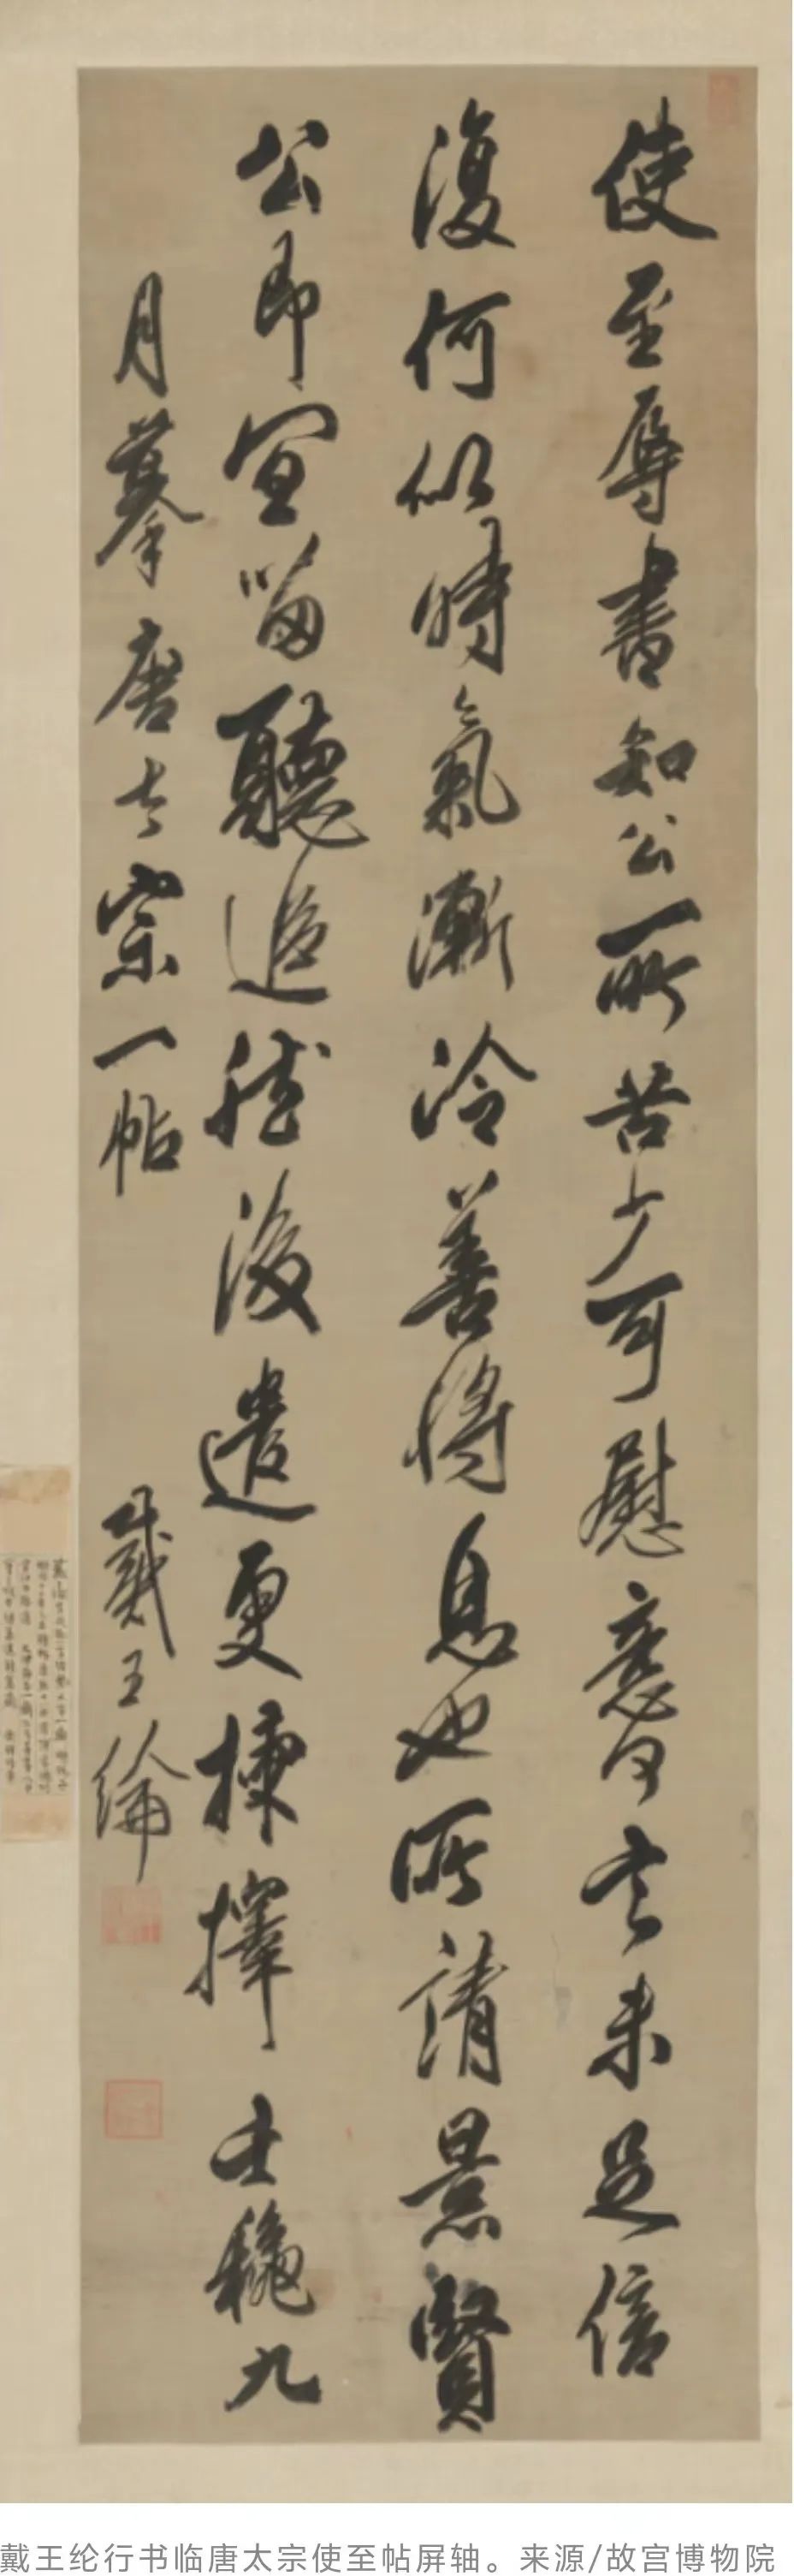 使至辱書知公所苦少可慰意何言未足信
復何似時氣漸冷善將息也所請景賢
公即宜留聽追徵後遣更揀擇壬穐九
月摹唐太宗一帖
戴王綸
戴王纶行书临唐太宗使至帖屏轴。来源/故宫博物院